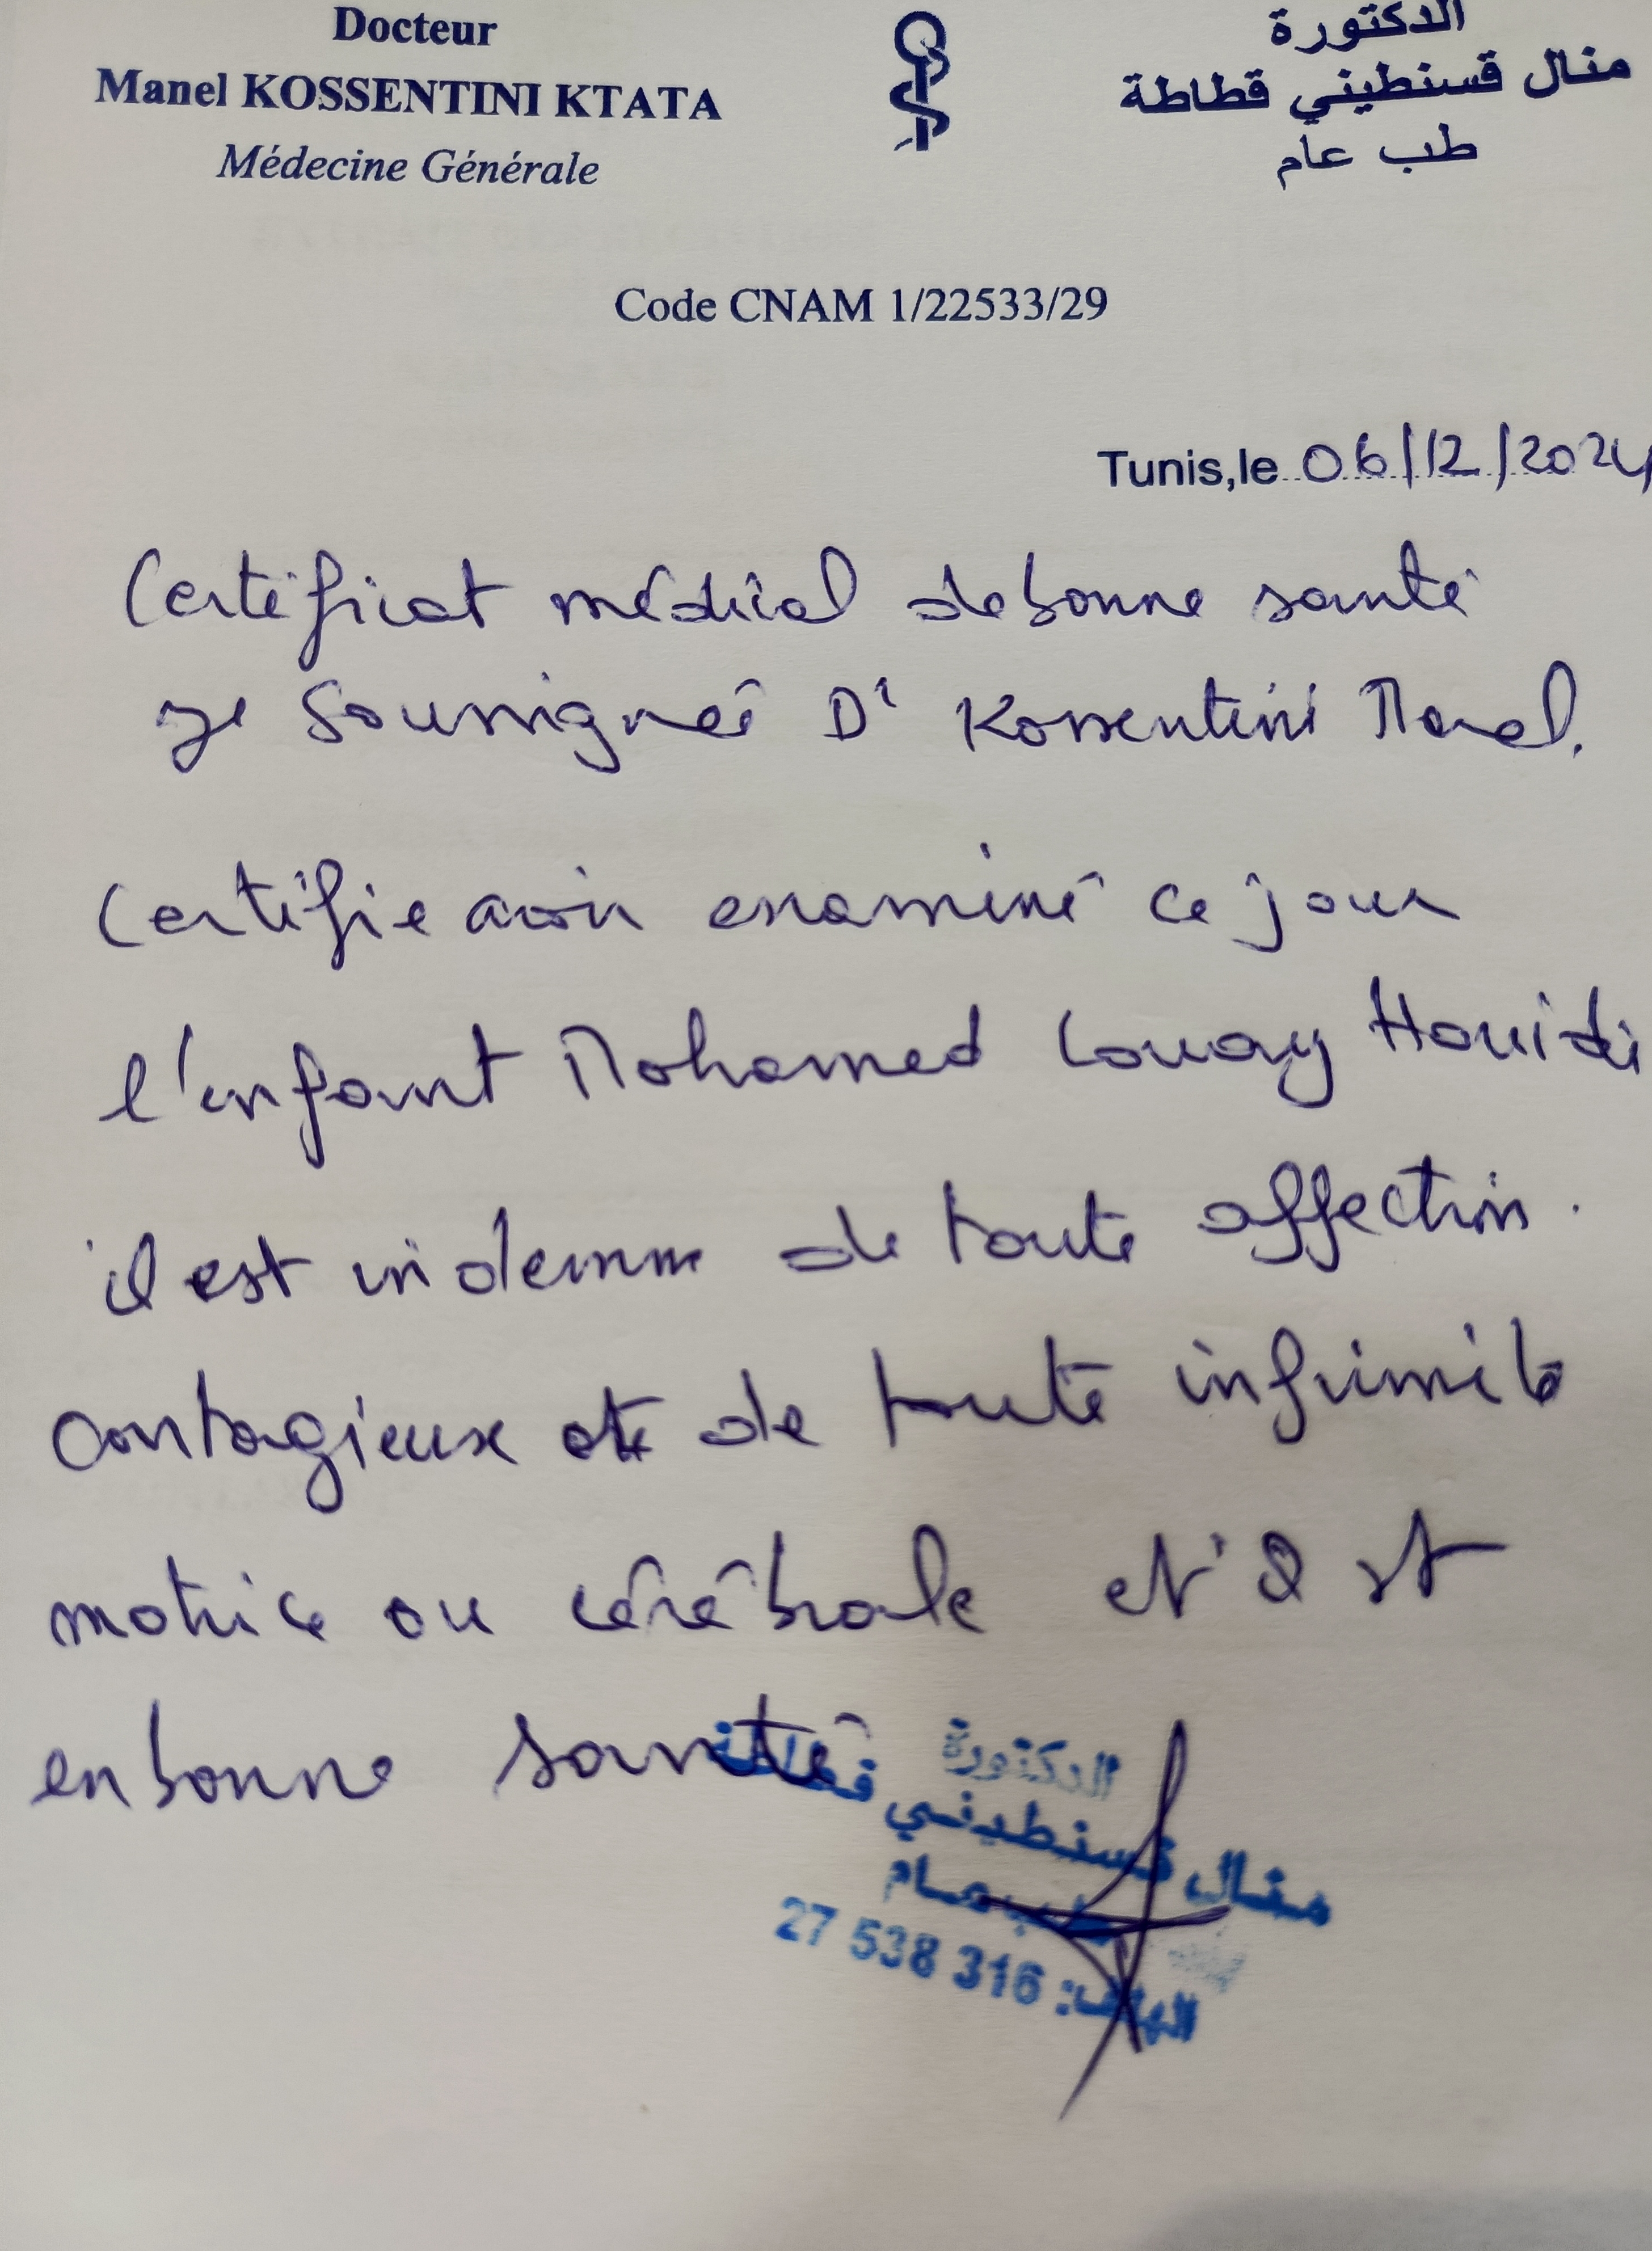 Docteur
Manel KOSSENTINI KTATA
Médecine Générale
الدكتورة
منال قسنطيني قطاطة
طب عام
Code CNAM 1/22533/29
Tunis,le 06/12/2024
Certificat médical de bonne santé
Je Soussigneé Dr Kossentini Manel.
Certifie avoir examiné ce jour
l'enfant Mohamed Louay Houidi
il est indemne de toute affection.
contagieux et de toute infirmité
motrice ou cérébrale et est
en bonne santé
الدكتورة
منال قسنطيني قطاطة
طب عام
الهاتف: 27 538 316